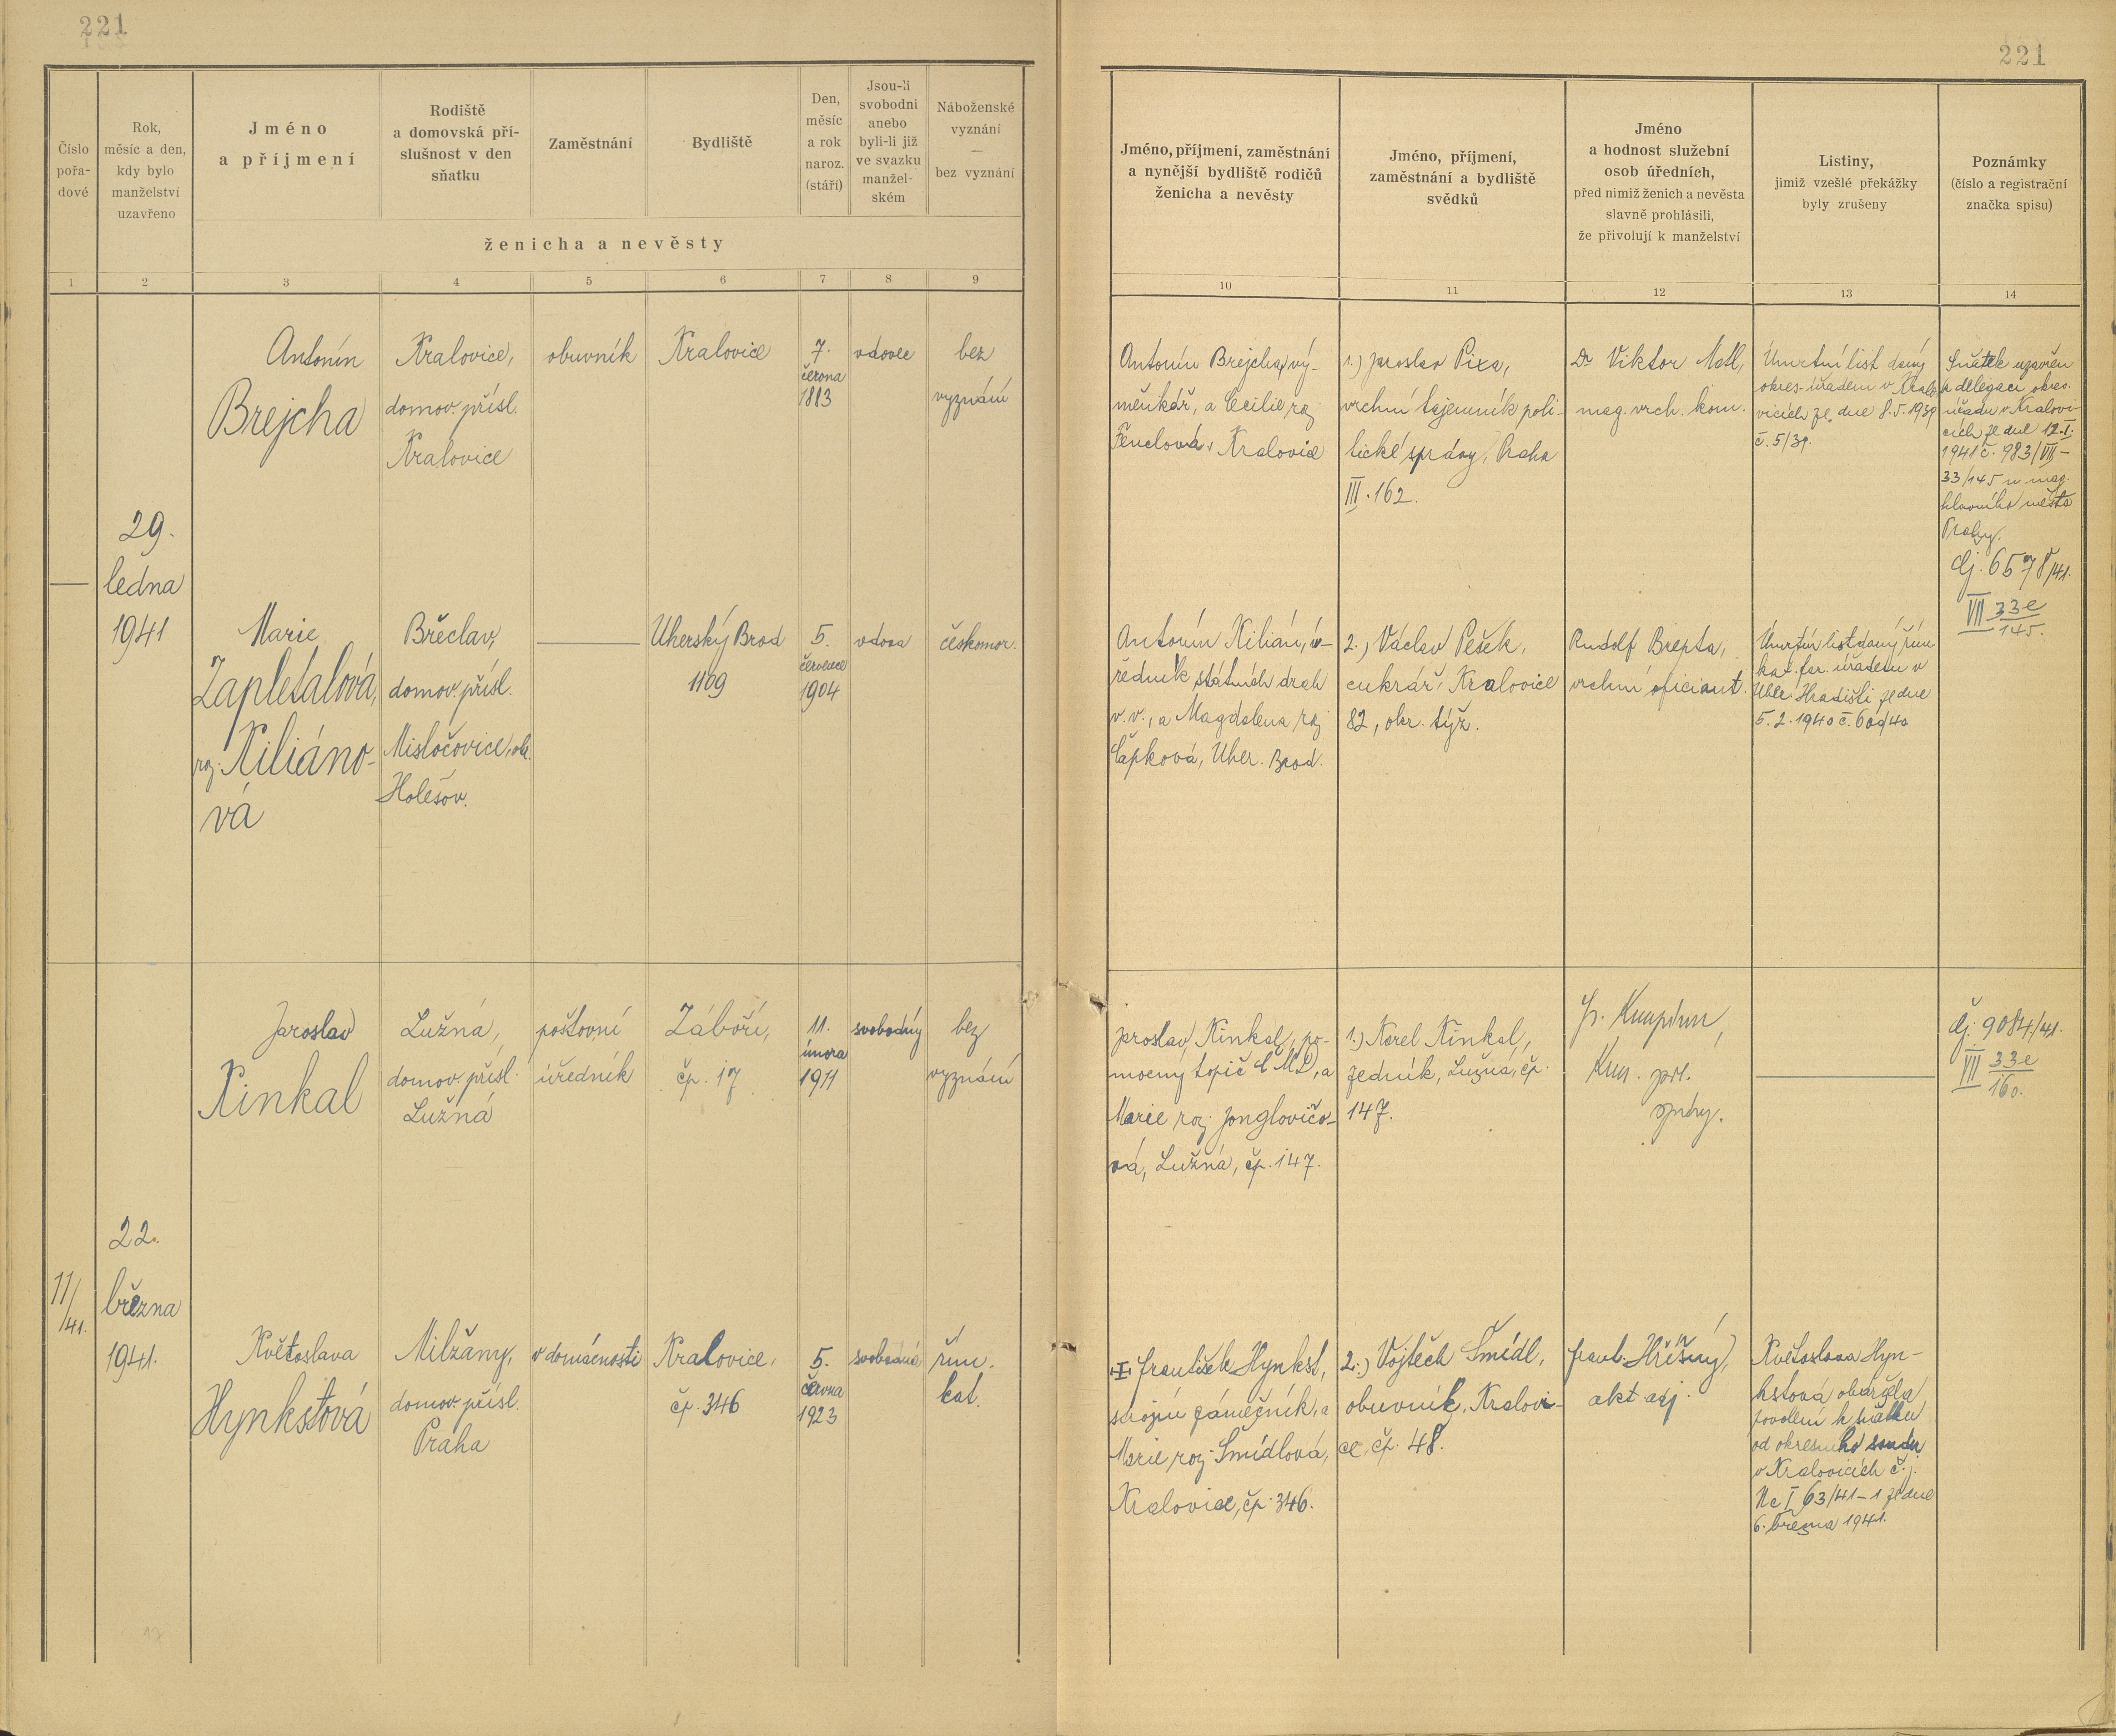 221
221
Číslo
pořa-
dové
Rok,
měsíc a den,
kdy bylo
manželství
uzavřeno
Jméno
a příjmení
Rodiště
a domovská pří-
slušnost v den
sňatku
Zaměstnání
Bydliště
Den,
měsíc
a rok
naroz.
(stáří)
Jsou-li
svobodni
anebo
byli-li již
ve svazku
manžel-
ském
Náboženské
vyznání
—
bez vyznání
ženicha a nevěsty
Jméno, příjmení, zaměstnání
a nynější bydliště rodičů
ženicha a nevěsty
Jméno, příjmení,
zaměstnání a bydliště
svědků
Jméno
a hodnost služební
osob úředních,
před nimiž ženich a nevěsta
slavně prohlásili,
že přivolují k manželství
Listiny,
jimiž vzešlé překážky
byly zrušeny
Poznámky
(číslo a registrační
značka spisu)
1 2 3 4 5 6 7 8 9 10 11 12 13 14
—
29.
ledna
1941
Antonín
Brejcha
Kralovice,
domov. přísl.
Kralovice
obuvník
Kralovice
7.
června
1883
vdovec
bez
vyznání
Antonín Brejcha, vý-
měnkář, a Cecilie roz.
Fenclová, Kralovice
1.) Jaroslav Pixa,
vrchní tajemník poli-
tické správy, Praha
III. 162.
Dr Viktor Matl,
mag. vrch. kom.
Úmrtní list daný
okres. úřadem v Kralo
vicích ze dne 8.5.1939
č. 5/39.
Sňatek uzavřen
z delegace okres.
úřadu v Kralovi-
cích ze dne 12.I.
1941 č. 983/VII-
33/145 u mag.
hlavního města
Prahy.
čj. 6578/41.
VII 33e
145.
Marie
Zapletalová,
roz. Kiliáno-
vá
Břeclav,
domov. přísl.
Misločovice, okr.
Holešov.
—
Uherský Brod
1109
5.
července
1904
vdova
českomor.
Antonín Kilián, ú-
ředník státních drah
v. v., a Magdalena roz.
Čapková, Uher. Brod.
2.) Václav Pešek,
cukrář, Kralovice
82, okr. týž.
Rudolf Brepta,
vrchní oficiant.
Úmrtní list daný řím.
kat. far. úřadem v
Uher. Hradišti ze dne
5.2.1940 č. 609/40
11/41.
22.
března
1941.
Jaroslav
Kinkal
Lužná,
domov. přísl.
Lužná
poštovní
úředník
Záboří,
čp. 17
11.
února
1911
svobodný
bez
vyznání
Jaroslav Kinkal, po-
mocný topič ČMD, a
Marie roz. Jonglovičo-
vá, Lužná, čp. 147.
1.) Karel Kinkal,
zedník, Lužná, čp.
147.
—
čj. 9084/41.
VII 33e
160.
Květoslava
Hynkstová
Milžany,
domov. přísl.
Praha
v domácnosti
Kralovice,
čp. 346
5.
června
1923
svobodná
řím.
kat.
František Hynkst,
strojní zámečník, a
Marie roz. Šmídlová,
Kralovice, čp. 346.
2.) Vojtěch Šmídl,
obuvník, Kralovi-
ce, čp. 48.
akt adj.
Květoslava Hyn-
kstová obdržela
povolení k sňatku
od okresního soudu
v Kralovicích č.j.
Nc I 63/41-1 ze dne
6. března 1941.